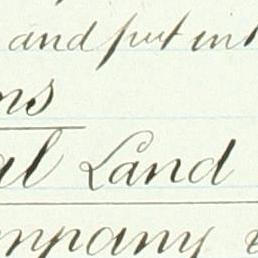 and put in
ns
al Land
mpany